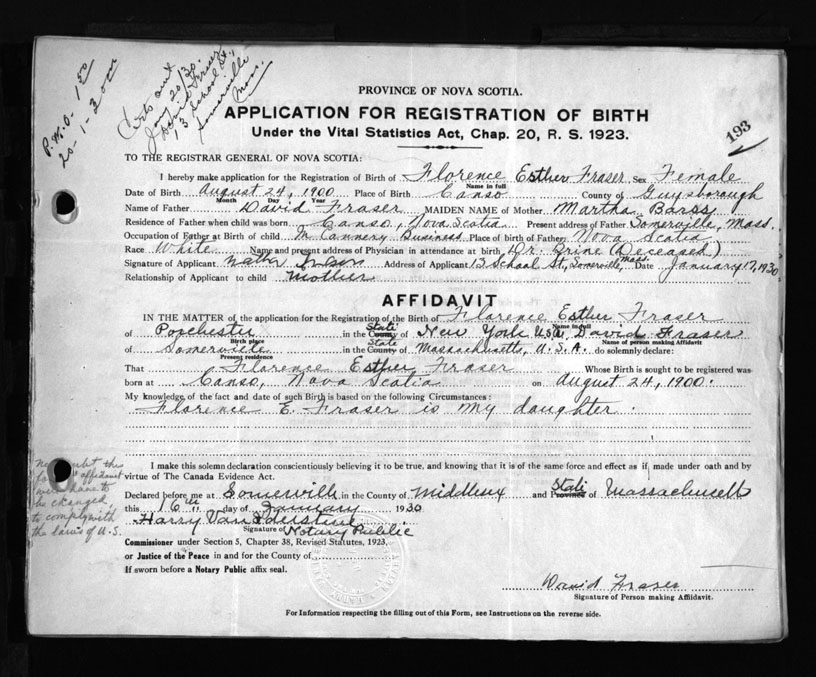 P.M.O. 1.50
20-1-30
Certs out
Jany 20/30.
David Fraser
13 School St.,
Somerville
Mass.
193
PROVINCE OF NOVA SCOTIA.
APPLICATION FOR REGISTRATION OF BIRTH
Under the Vital Statistics Act, Chap. 20, R. S. 1923.
TO THE REGISTRAR GENERAL OF NOVA SCOTIA:
I hereby make application for the Registration of Birth of Florence Esther Fraser Sex Female
Name in full
Date of Birth August 24, 1900 Place of Birth Canso County of Guysborough
Month Day Year
Name of Father David Fraser MAIDEN NAME of Mother Martha Barss
Residence of Father when child was born Canso, Nova Scotia Present address of Father Somerville, Mass.
Occupation of Father at Birth of child In Cannery Business Place of birth of Father Nova Scotia
Race White Name and present address of Physician in attendance at birth Dr. Brine (Deceased)
Signature of Applicant Address of Applicant 13 School St., Somerville, Mass Date January 17, 1930
Relationship of Applicant to child Mother
AFFIDAVIT
IN THE MATTER of the application for the Registration of the Birth of Florence Esther Fraser
Name in full
of in the County State of New York U.S.A. David Fraser
Birth place Name of person making Affidavit
of Somerville in the County State of Massachusetts, U.S.A. do solemnly declare:
Present residence
That Florence Esther Fraser Whose Birth is sought to be registered was
born at Canso, Nova Scotia on August 24, 1900.
My knowledge of the fact and date of such Birth is based on the following Circumstances:
Florence E. Fraser is my daughter.
I make this solemn declaration conscientiously believing it to be true, and knowing that it is of the same force and effect as if made under oath and by
virtue of The Canada Evidence Act.
Declared before me at Somerville in the County of Middlesex and Province State of Massachusetts
this 16th day of January 1930
Harry Van
Signature of Notary Public
Commissioner under Section 5, Chapter 38, Revised Statutes, 1923,
or Justice of the Peace in and for the County of
If sworn before a Notary Public affix seal.
David Fraser
Signature of Person making Affidavit.
For Information respecting the filling out of this Form, see Instructions on the reverse side.
No doubt this
affidavit
would have to
be changed
to comply with
the laws of U.S.